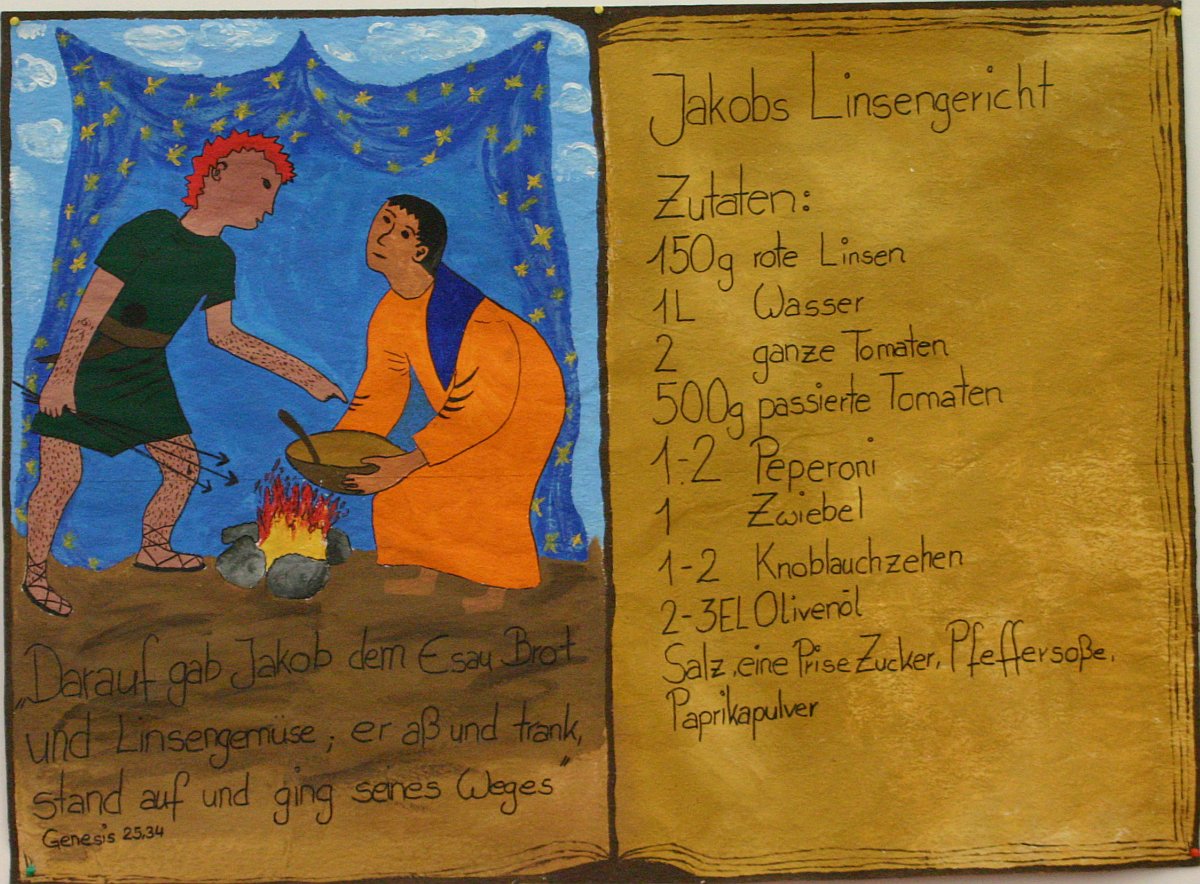 „Darauf gab Jakob dem Esau Brot
und Linsengemüse; er aß und trank,
stand auf und ging seines Weges"
Genesis 25,34
Jakobs Linsengericht
Zutaten:
150g rote Linsen
1L Wasser
2 ganze Tomaten
500g passierte Tomaten
1-2 Peperoni
1 Zwiebel
1-2 Knoblauchzehen
2-3EL Olivenöl
Salz, eine Prise Zucker, Pfeffersoße,
Paprikapulver